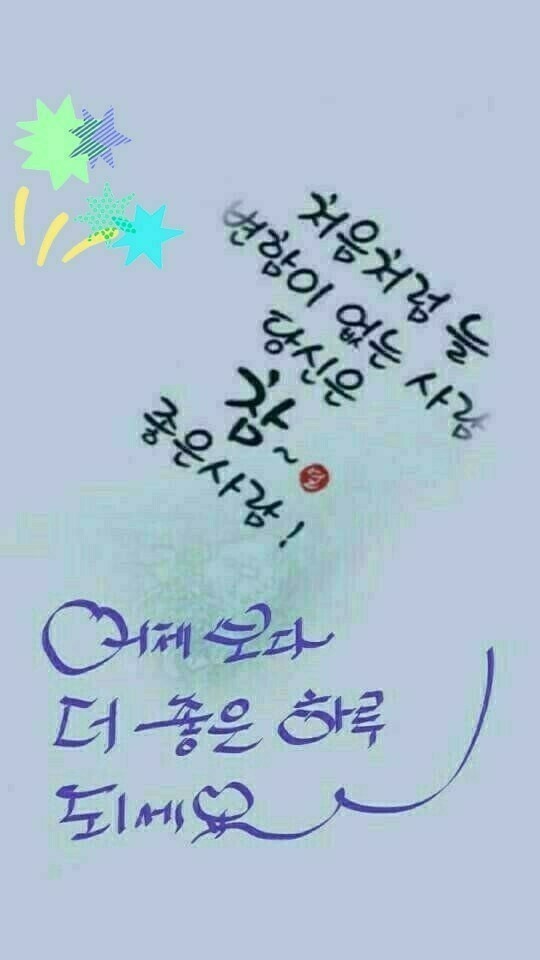 처음처럼 늘
변함이 없는 사람
당신은
참~
좋은사람!
어제 보다
더 좋은 하루
되세요